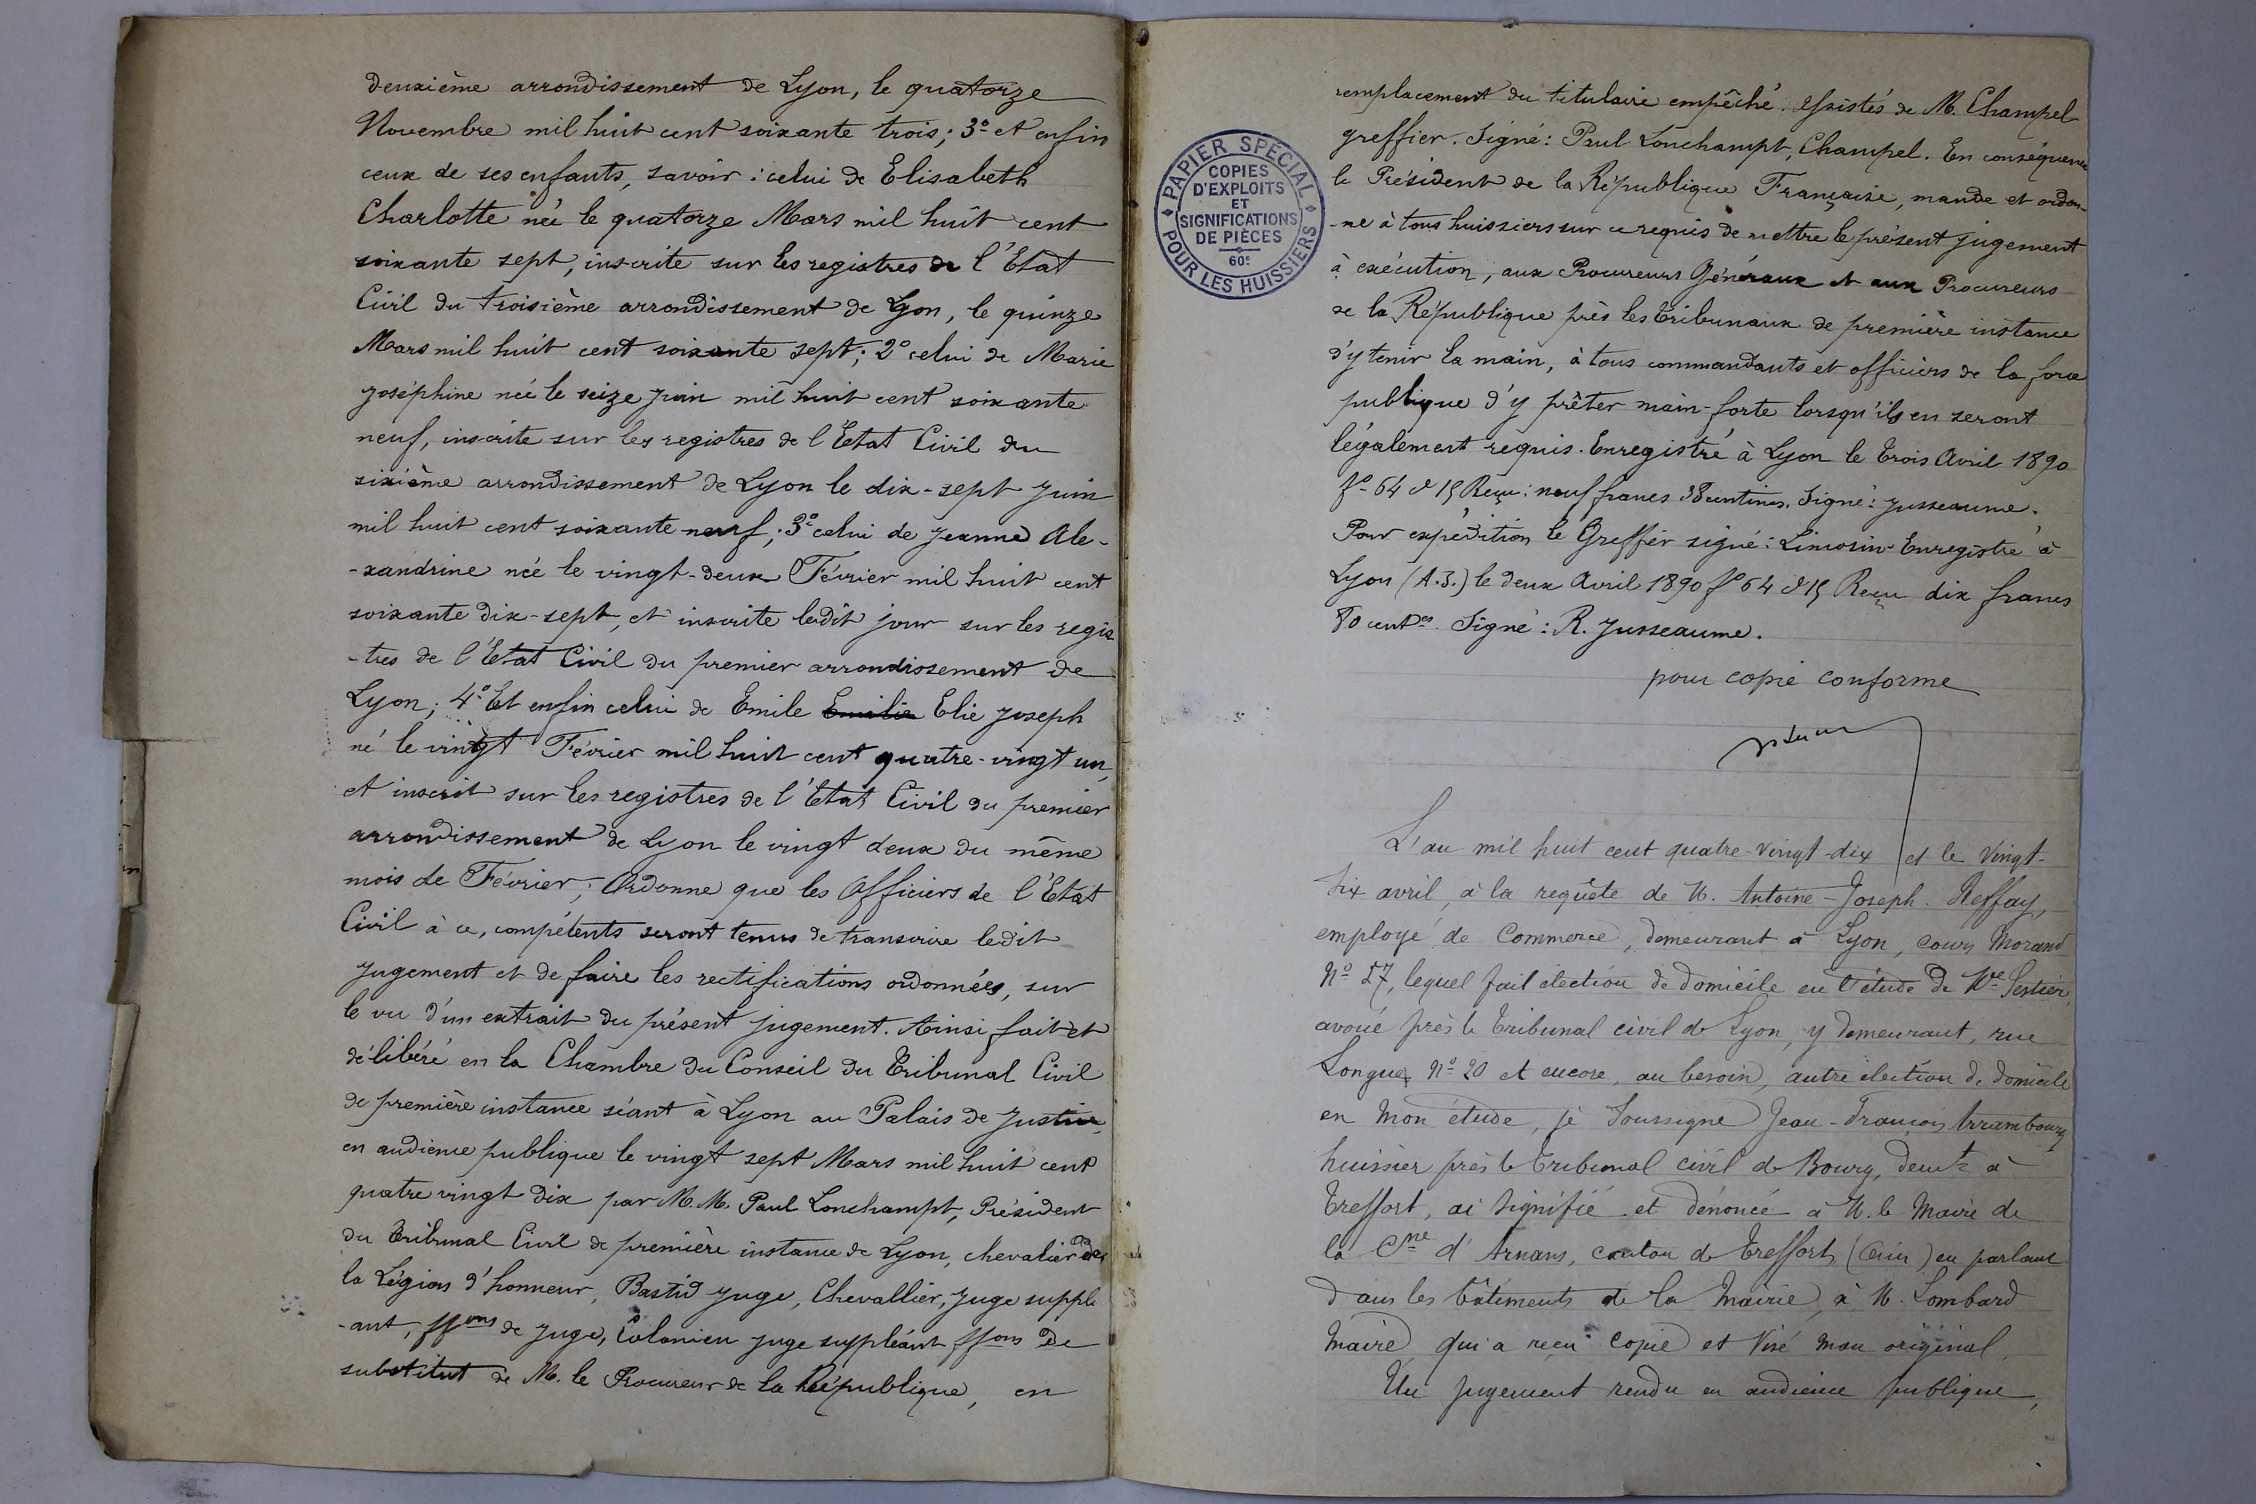 deuxième arrondissement de Lyon, le quatorze
Novembre mil huit cent soixante trois; 3º et enfin
ceux de ses enfants, savoir: celui de Elisabeth
Charlotte née le quatorze Mars mil huit cent
soixante sept, inscrite sur les registres de l'Etat
Civil du troisième arrondissement de Lyon, le quinze
Mars mil huit cent soixante sept; 2º celui de Marie
Joséphine née le seize Juin mil huit cent soixante
neuf, inscrite sur les registres de l'Etat Civil du
sixième arrondissement de Lyon le dix-sept Juin
mil huit cent soixante neuf; 3º celui de Jeanne Ale-
-xandrine née le vingt-deux Février mil huit cent
soixante dix-sept, et inscrite ledit jour sur les regis
-tres de l'Etat Civil du premier arrondissement de
Lyon; 4º Et enfin celui de Emile Emilie Elie Joseph
né le vingt Février mil huit cent quatre-vingt un,
et inscrit sur les registres de l'Etat Civil du premier
arrondissement de Lyon le vingt deux du même
mois de Février; Ordonne que les Officiers de l'Etat
Civil à ce, compétents seront tenus de transcrire ledit
Jugement et de faire les rectifications ordonnées, sur
le vu d'un extrait du présent jugement. Ainsi fait et
délibéré en la Chambre du Conseil du Tribunal Civil
de première instance séant à Lyon au Palais de Justice
en audience publique le vingt sept Mars mil huit cent
quatre vingt dix par M.M. Paul Lonchampt, Président
du Tribunal Civil de première instance de Lyon, chevalier de
la Légion d'honneur, Bastid Juge, Chevallier, Juge supplé
-ant, ffons de Juge, Colonieu juge suppléant ffons de
substitut de M. le Procureur de la République, en
remplacement du titulaire empêché. Assistés de M. Champel
greffier. Signé: Paul Lonchampt, Champel. En conséquence
le Président de la République Française, mande et ordon-
-ne à tous huissiers sur ce requis de mettre le présent jugement
à exécution, aux Procureurs Généraux et aux Procureurs
de la République près les tribunaux de première instance
d'y tenir la main, à tous commandants et officiers de la force
publique d'y prêter main-forte lorsqu'ils en seront
légalement requis. Enregistré à Lyon le trois Avril 1890
fº 64 cl 15 Reçu: neuf francs 38 centimes. Signé: Jusseaume.
Pour expédition le Greffier signé: Limosin Enregistré à
Lyon (A.J.) le deux Avril 1890 fº 64 cl 15 Reçu dix francs
80 centes. Signé: R. Jusseaume.
pour copie conforme
PAPIER SPÉCIAL
POUR LES HUISSIERS
COPIES
D'EXPLOITS
ET
SIGNIFICATIONS
DE PIÈCES
60c
L'an mil huit cent quatre-vingt-dix et le vingt-
six avril, à la requête de M. Antoine-Joseph Reffay,
employé de Commerce, demeurant à Lyon, cours Morand
Nº 57, lequel fait élection de domicile en l'étude de Me Sestier,
avoué près le Tribunal civil de Lyon, y demeurant, rue
Longue Nº 20 et encore, au besoin, autre élection de domicile
en mon étude, je soussigné Jean-François Arrambourg
huissier près le Tribunal civil de Bourg, demt à
Treffort, ai signifié et dénoncé à M. le Maire de
la Cne d'Arnans, canton de Treffort (Ain) en parlant
dans les bâtiments de la Mairie, à M. Lombard
Maire qui a reçu copie et visé mon original,
Un jugement rendu en audience publique,